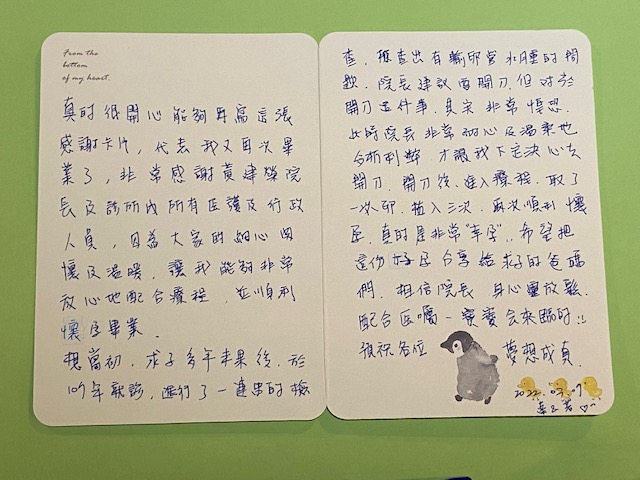 From the
bottom
of my heart.
真的很開心能夠再寫這張
感謝卡片，代表我又再次畢
業了，非常感謝黃建榮院
長及診所內所有醫護及行政
人員，因為大家的細心關
懷及溫暖，讓我能夠非常
放心地配合療程，並順利
懷孕畢業．
想當初，求子多年未果後，於
109年就診，進行了一連串的檢
查，檢查出有輸卵管水腫的問
題．院長建議要開刀，但對於
開刀這件事，其實非常恐懼．
此時院長非常細心及溫柔地
分析利弊，才讓我下定決心去
開刀．開刀後，進入療程．取了
一次卵，植入三次，兩次順利懷
孕．真的是非常"幸孕"．希望把
這份好孕分享給求子的爸媽
們．相信院長，身心靈放鬆．
配合醫囑，寶寶會來臨的::
預祝各位 夢想成真．
2022.03.07